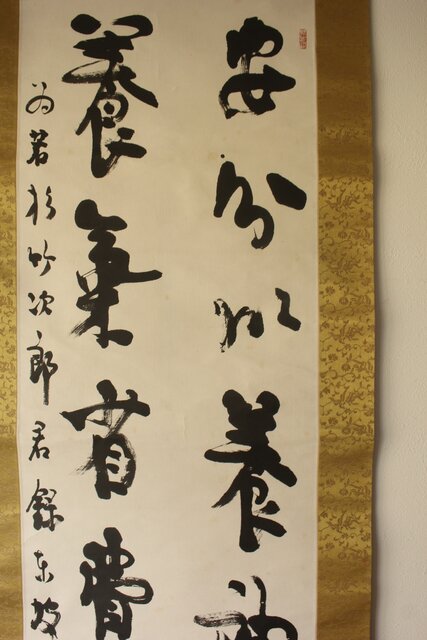 安分以養
養氣省費
為若杉竹次郎君錄東坡